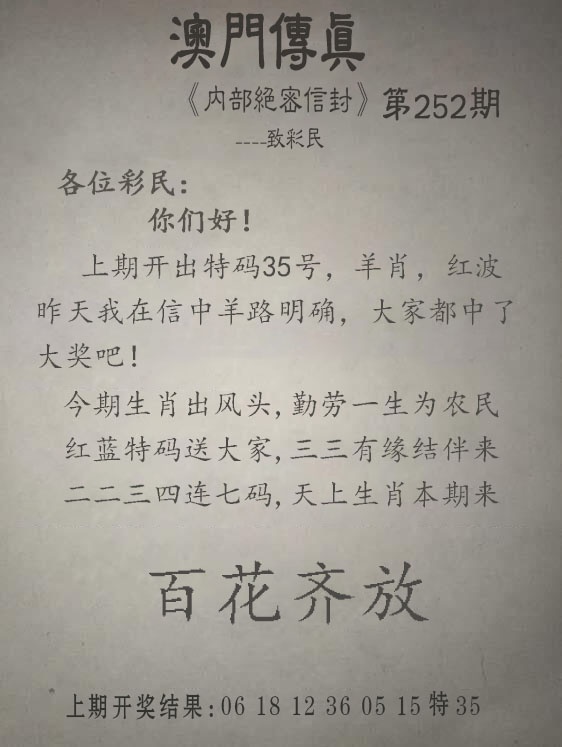 澳門傳眞
《内部絕密信封》第252期
----致彩民
各位彩民:
你们好!
上期开出特码35号，羊肖，红波
昨天我在信中羊路明确，大家都中了
大奖吧!
今期生肖出风头,勤劳一生为农民
红蓝特码送大家,三三有缘结伴来
二二三四连七码,天上生肖本期来
百花齐放
上期开奖结果:06 18 12 36 05 15 特 35